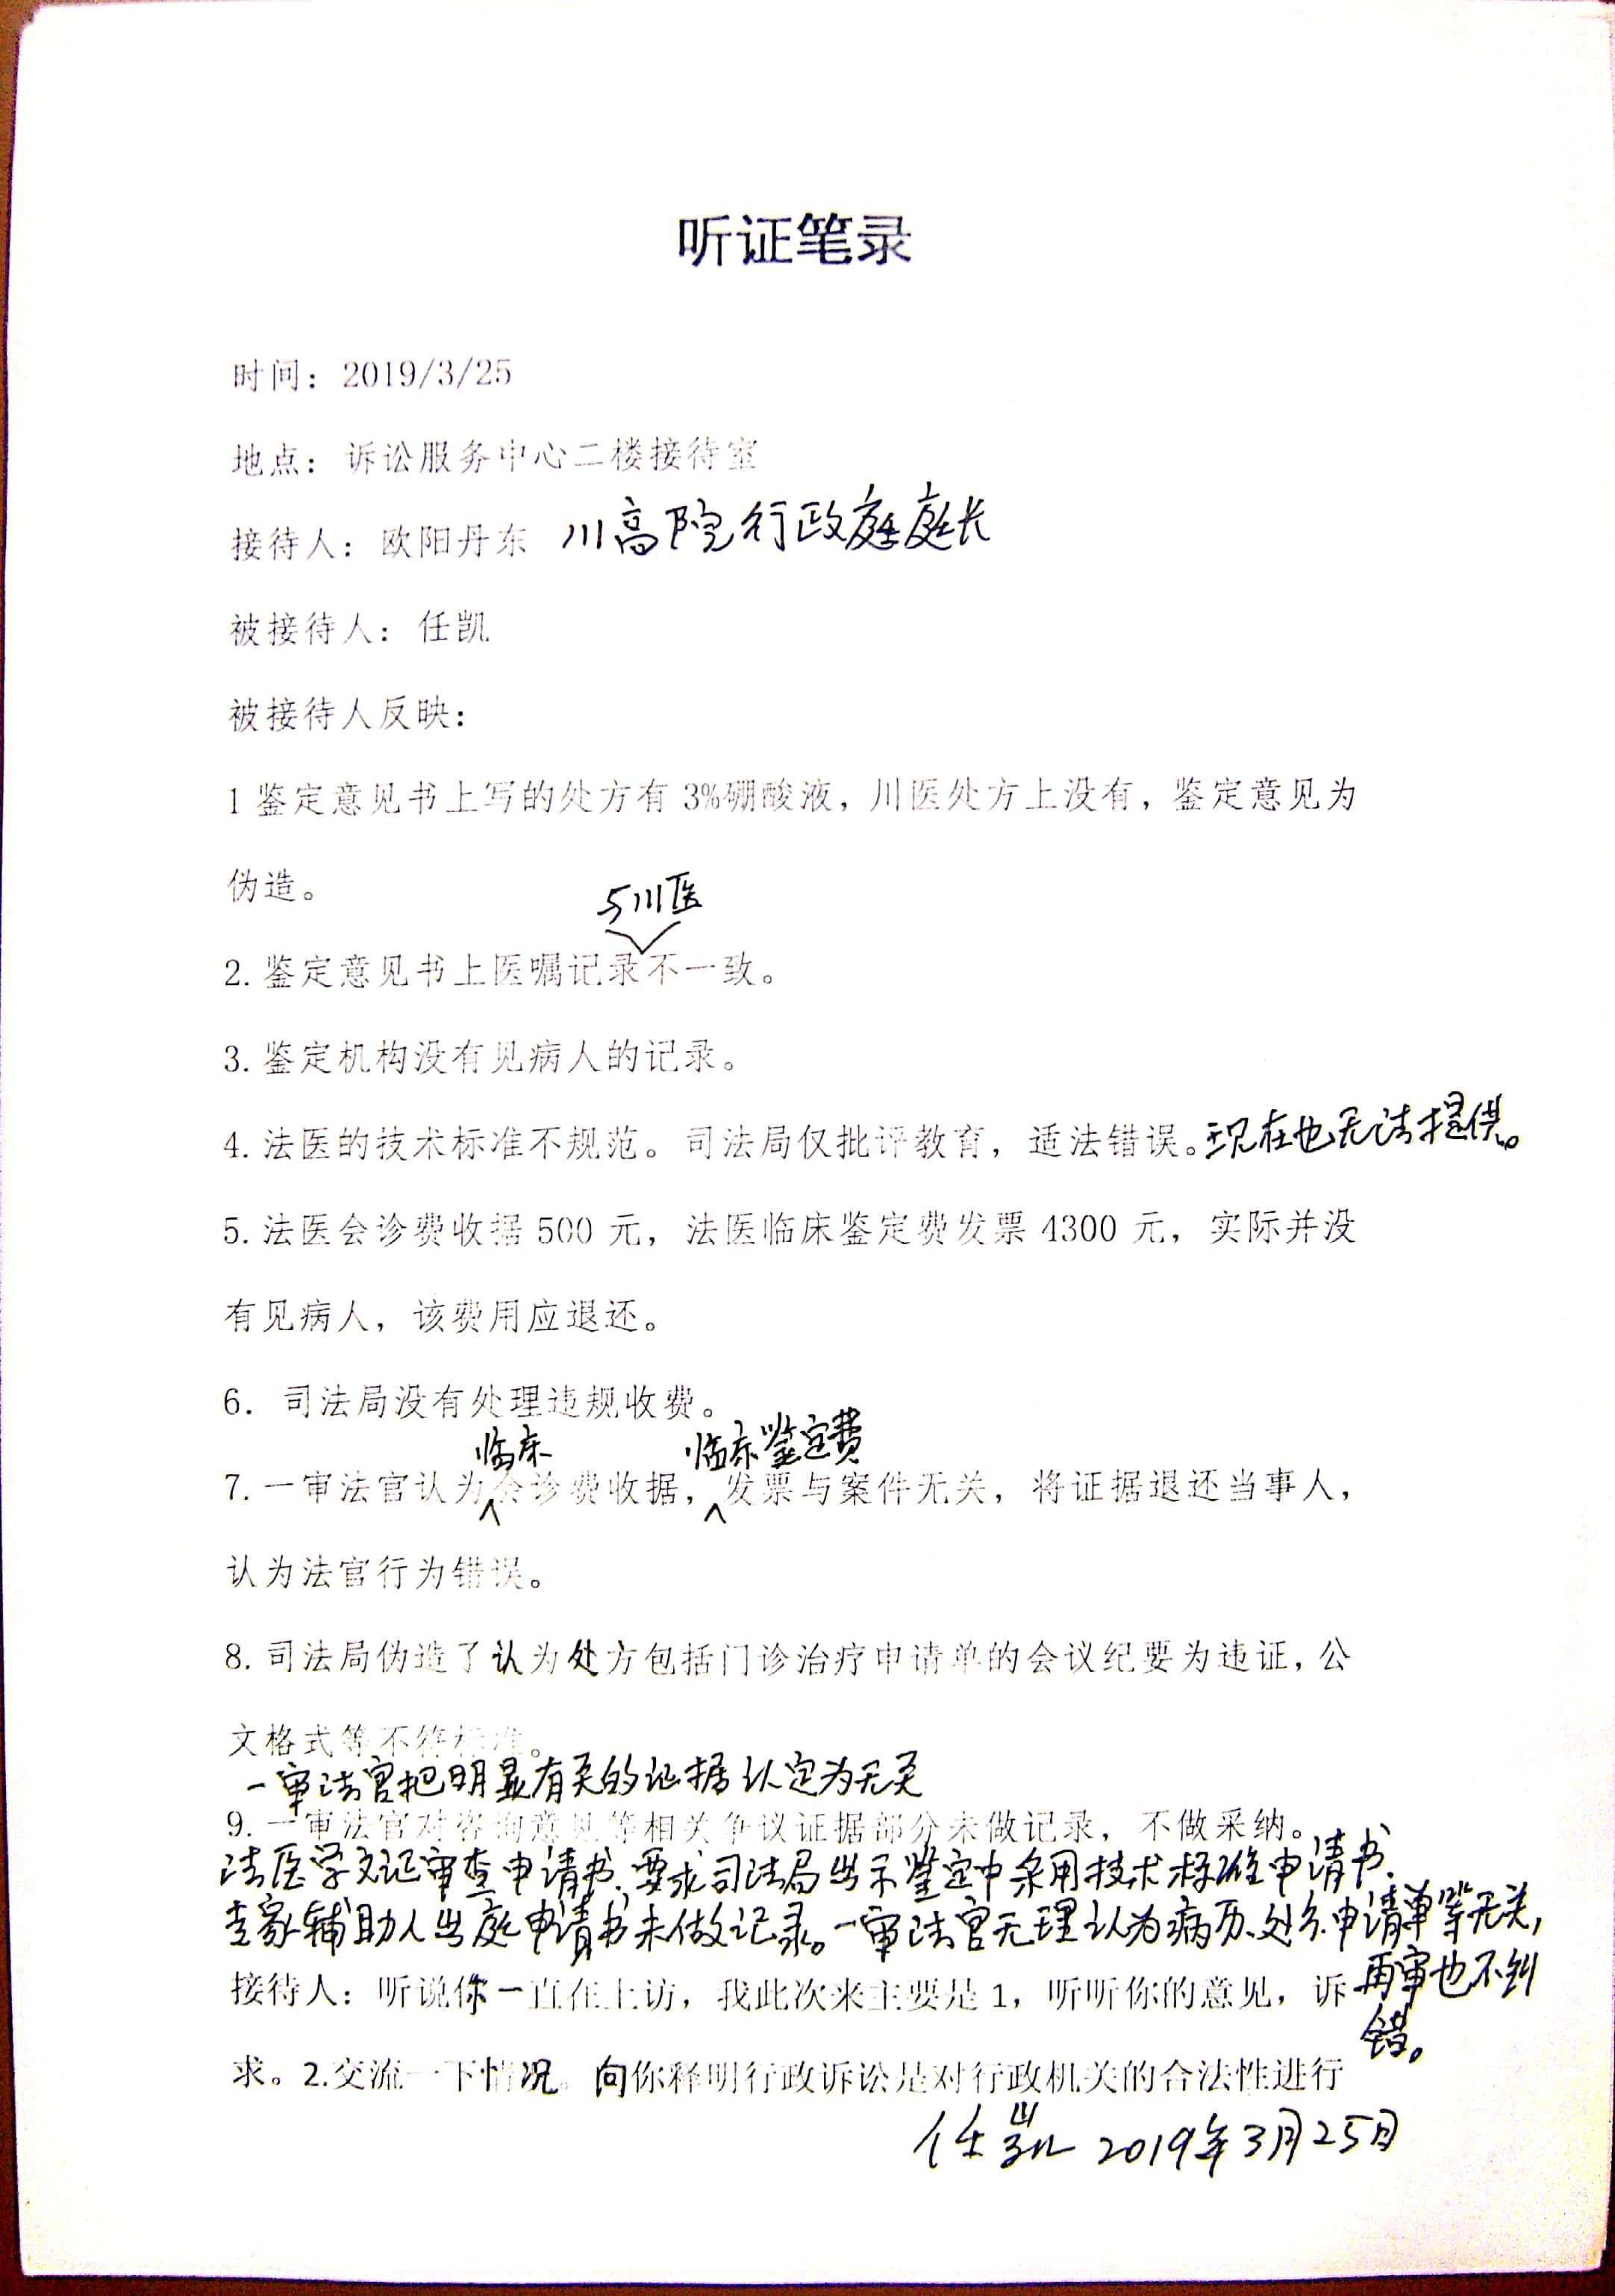 听证笔录
时间：2019/3/25
地点：诉讼服务中心二楼接待室
接待人：欧阳丹东 川高院行政庭庭长
被接待人：任凯
被接待人反映：
1 鉴定意见书上写的处方有 3%硼酸液，川医处方上没有，鉴定意见为
伪造。
与川医
2. 鉴定意见书上医嘱记录不一致。
3. 鉴定机构没有见病人的记录。
4. 法医的技术标准不规范。司法局仅批评教育，适法错误。现在也无法提供。
5. 法医会诊费收据 500 元，法医临床鉴定费发票 4300 元，实际并没
有见病人，该费用应退还。
6. 司法局没有处理违规收费。
临床 临床鉴定费
7. 一审法官认为会诊费收据，发票与案件无关，将证据退还当事人，
认为法官行为错误。
8. 司法局伪造了认为处方包括门诊治疗申请单的会议纪要为违证，公
文格式等不符标准。
一审法官把明显有关的证据认定为无关
9. 一审法官对咨询意见等相关争议证据部分未做记录，不做采纳。
法医学文证审查申请书、要求司法局出示鉴定中采用技术标准申请书、
专家辅助人出庭申请书未做记录。一审法官无理认为病历、处方、申请单等无关，
再审也不纠
错。
接待人：听说你一直在上访，我此次来主要是 1，听听你的意见，诉
求。2.交流一下情况。向你释明行政诉讼是对行政机关的合法性进行
任凯 2019年3月25日